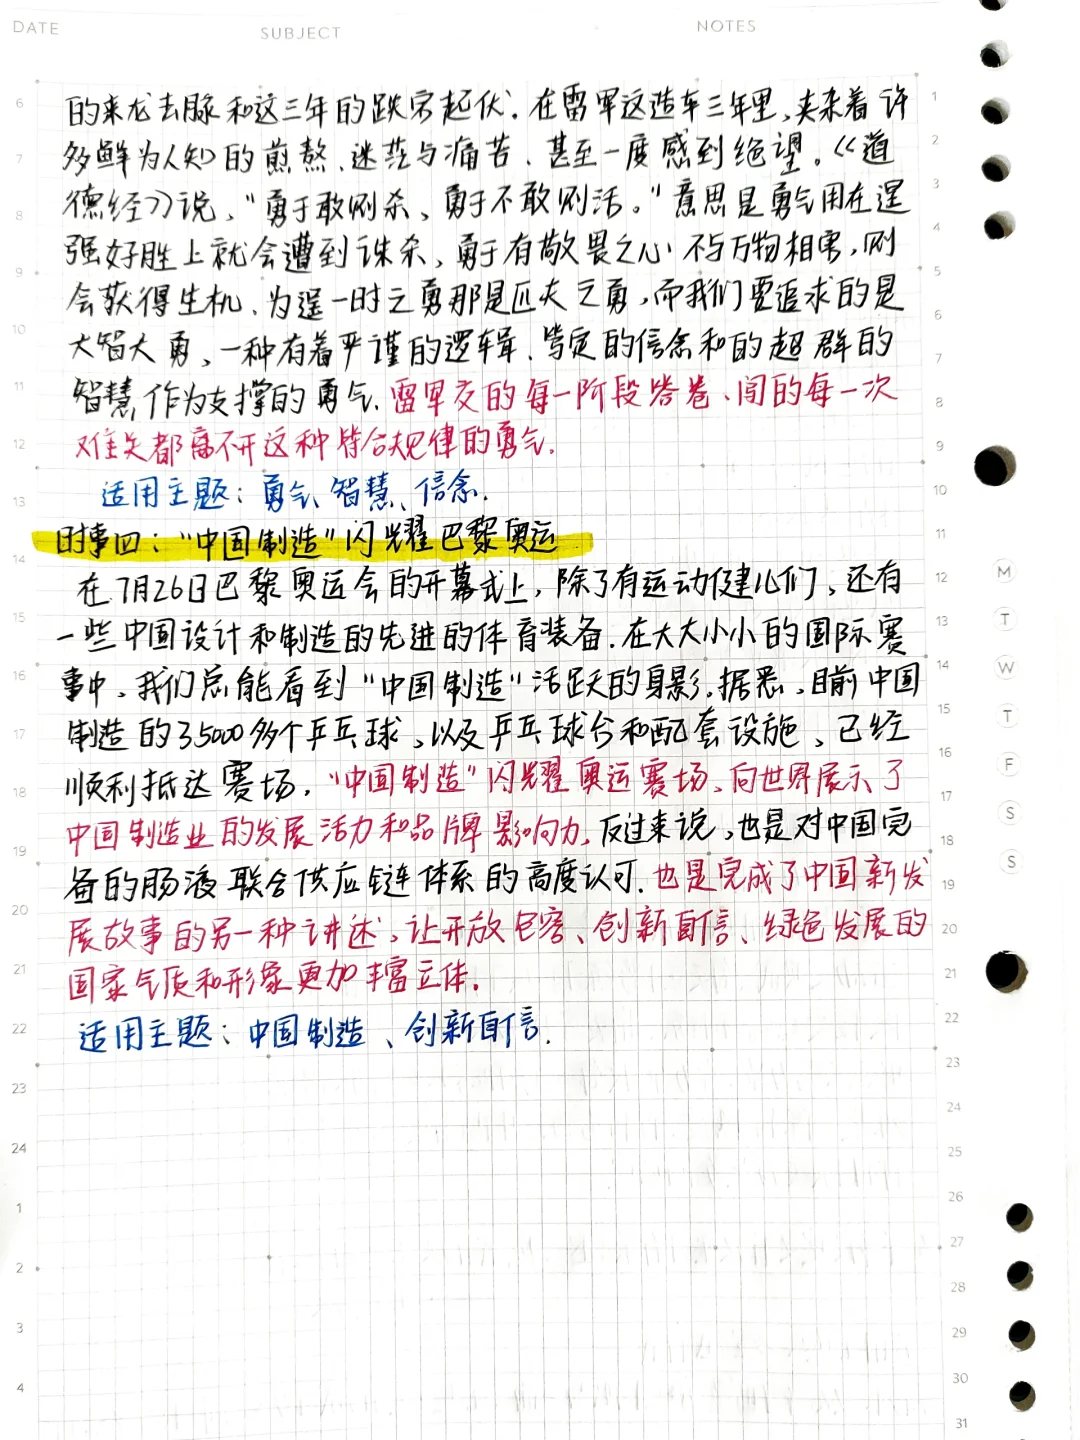 DATE SUBJECT NOTES
的来龙去脉和这三年的跌宕起伏.在雷军这造车三年里,夹杂着许
多鲜为人知的煎熬、迷茫与痛苦、甚至一度感到绝望。《道
德经》说,"勇于敢则杀,勇于不敢则活。"意思是勇气用在逞
强好胜上就会遭到诛杀,勇于有敬畏之心不与万物相害,则
会获得生机.为逞一时之勇那是匹夫之勇,而我们要追求的是
大智大勇,一种有着严谨的逻辑、笃定的信念和的超群的
智慧作为支撑的勇气.雷军交的每一阶段答卷、闯的每一次
难关都离不开这种皆合规律的勇气.
适用主题:勇气、智慧、信念.
时事四:"中国制造"闪耀巴黎奥运
在7月26日巴黎奥运会的开幕式上,除了有运动健儿们,还有
一些中国设计和制造的先进的体育装备.在大大小小的国际赛
事中,我们总能看到"中国制造"活跃的身影.据悉,目前中国
制造的35000多个乒乓球,以及乒乓球台和配套设施,已经
顺利抵达赛场."中国制造"闪耀奥运赛场、向世界展示了
中国制造业的发展活力和品牌影响力.反过来说,也是对中国完
备的肠液联合供应链体系的高度认可.也是完成了中国新发
展故事的另一种讲述,让开放包容、创新自信、绿色发展的
国家气质和形象更加丰富立体.
适用主题:中国制造、创新自信.
6
7
8
9
10
11
12
13
14
15
16
17
18
19
20
21
22
23
24
1
2
3
4
1
2
3
4
5
6
7
8
9
10
11
12
13
14
15
16
17
18
19
20
21
22
23
24
25
26
27
28
29
30
31
M
T
W
T
F
S
S